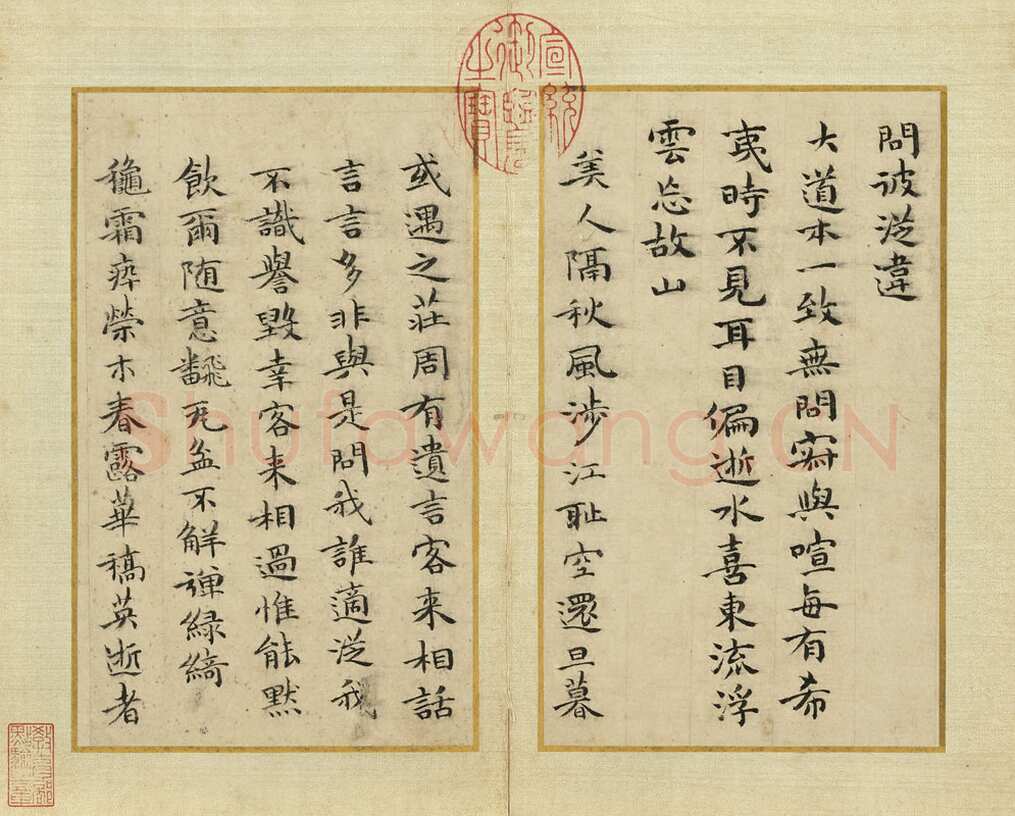 問彼從違
大道本一致無問寂與喧每有希
夷時不見耳目偏逝水喜東流浮
雲忘故山
美人隔秋風涉江耻空還旦暮
或遇之莊周有遺言客来相話
言言多非與是問我誰適從我
不識譽毀幸客来相過惟能默
飲爾随意翻瓦盆不解彈緑綺
龝霜瘁榮木春露華稿英逝者
宣統御覽之寶
Shufawang.CN